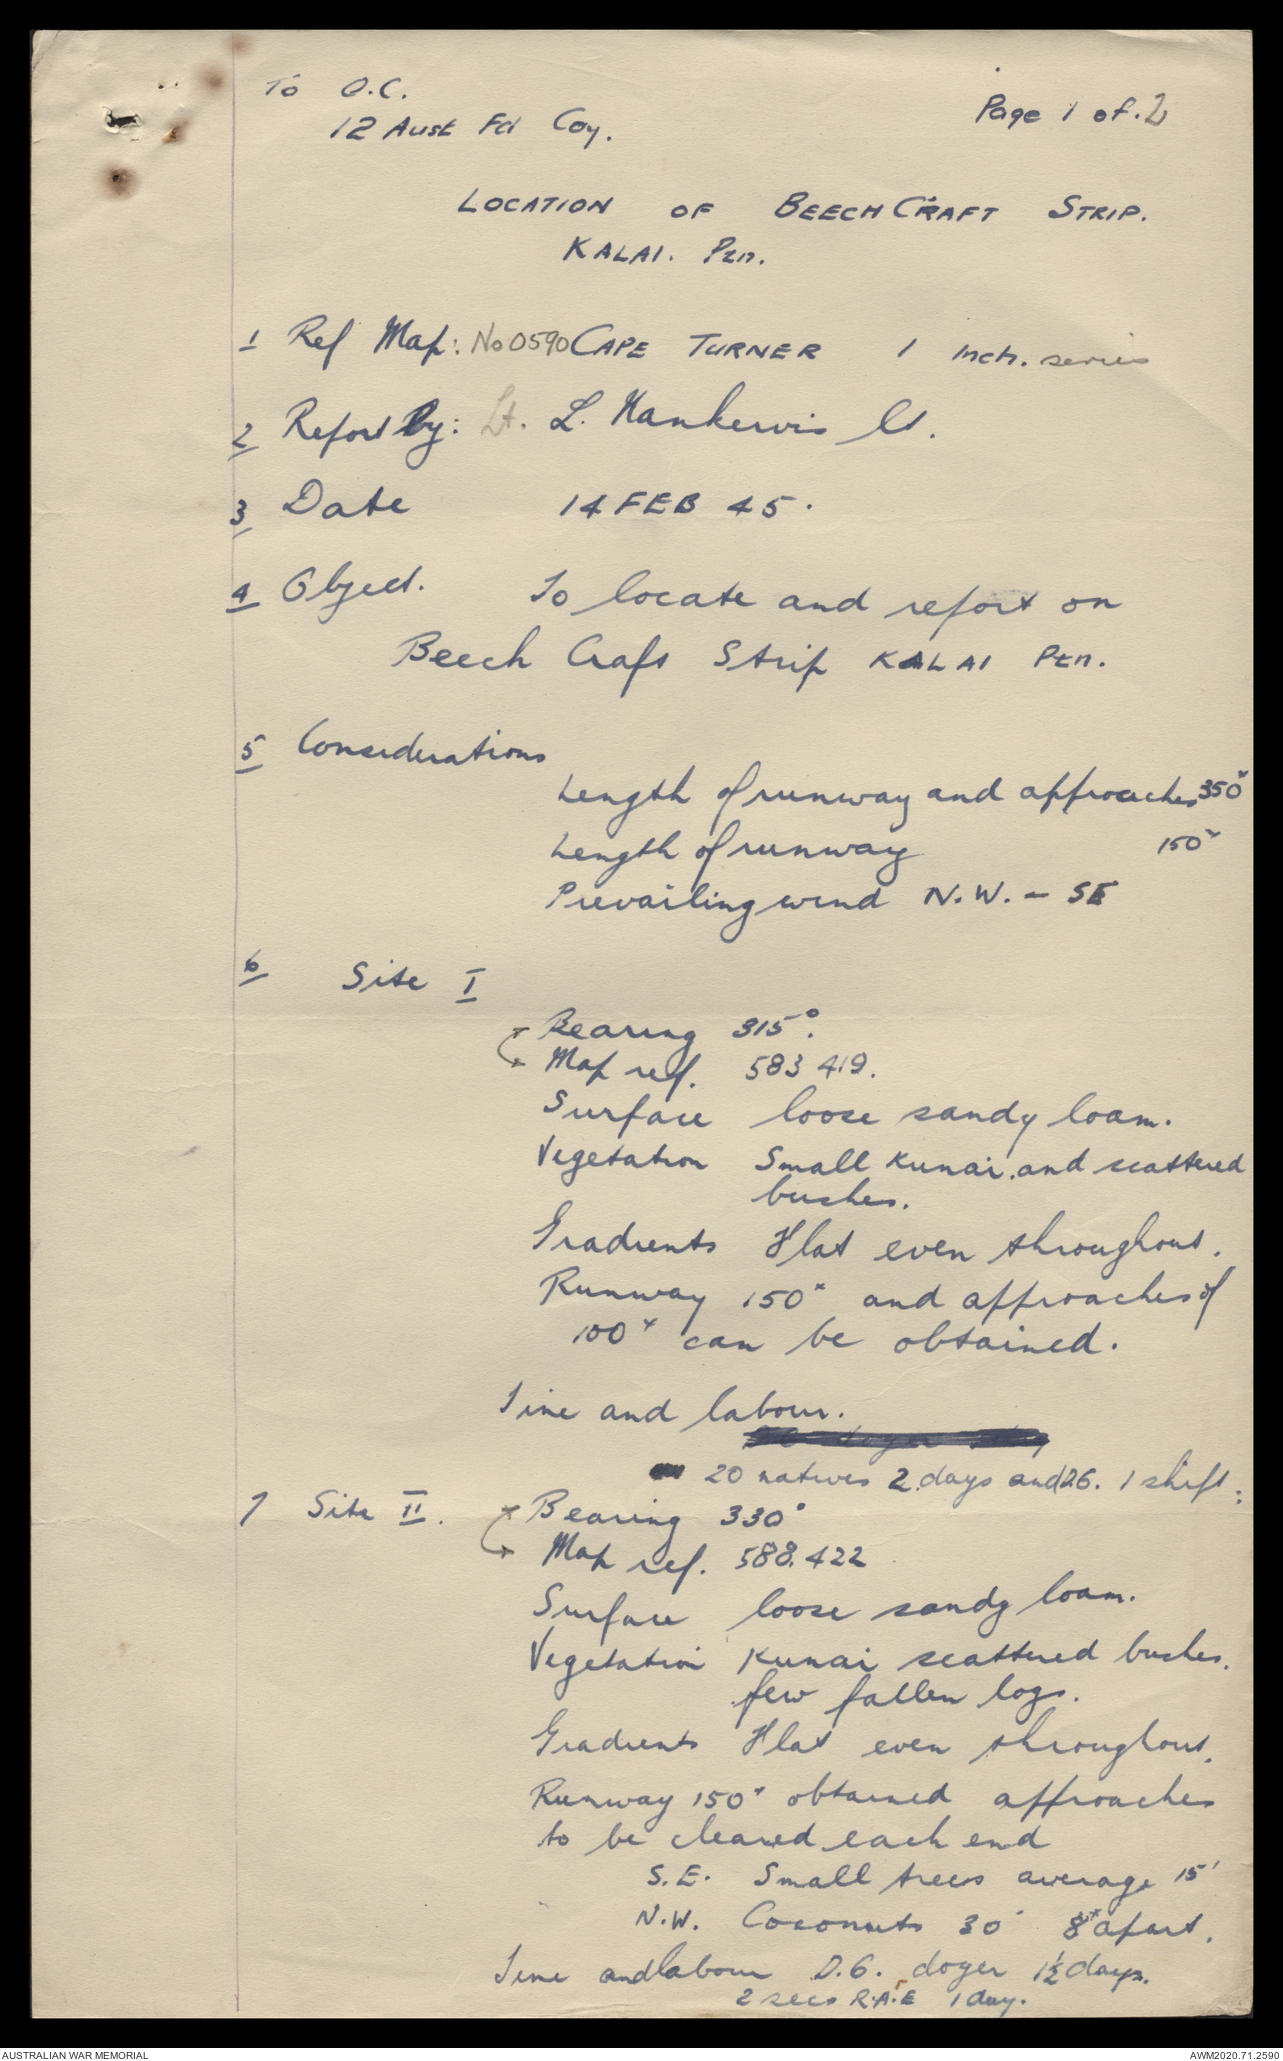 To O.C.
12 Aust Fd Coy.
Page 1 of.2
LOCATION OF BEECHCRAFT STRIP.
KALAI. Pen.
1 Ref Map: No 0590 CAPE TURNER 1 Inch. series
2 Report By: Lt. L. Nankervis Lt.
3 Date 14 FEB 45.
4 Object. To locate and report on
Beech Craft Strip KALAI Pen.
5 Considerations
Length of runway and approaches 350ˣ
Length of runway 150ˣ
Prevailing wind N.W. - SE
6 Site I
Bearing 315°.
Map ref. 583 419.
Surface loose sandy loam.
Vegetation Small Kunai. and scattered
bushes.
Gradients Flat even throughout.
Runway 150ˣ and approaches of
100ˣ can be obtained.
Time and labour.
20 natives 2 days and D6. 1 shift.
7 Site II. Bearing 330°
Map ref. 588.422
Surface loose sandy loam.
Vegetation Kunai scattered bushes.
few fallen logs.
Gradients Flat even throughout.
Runway 150ˣ obtained approaches
to be cleared each end
S.E. Small trees average 15'
N.W. Coconuts 30' 8ˣ apart.
Time and labour D.6. dozer 1½ days.
2 secs R.A.E 1 day.
AUSTRALIAN WAR MEMORIAL
AWM2020.71.2590